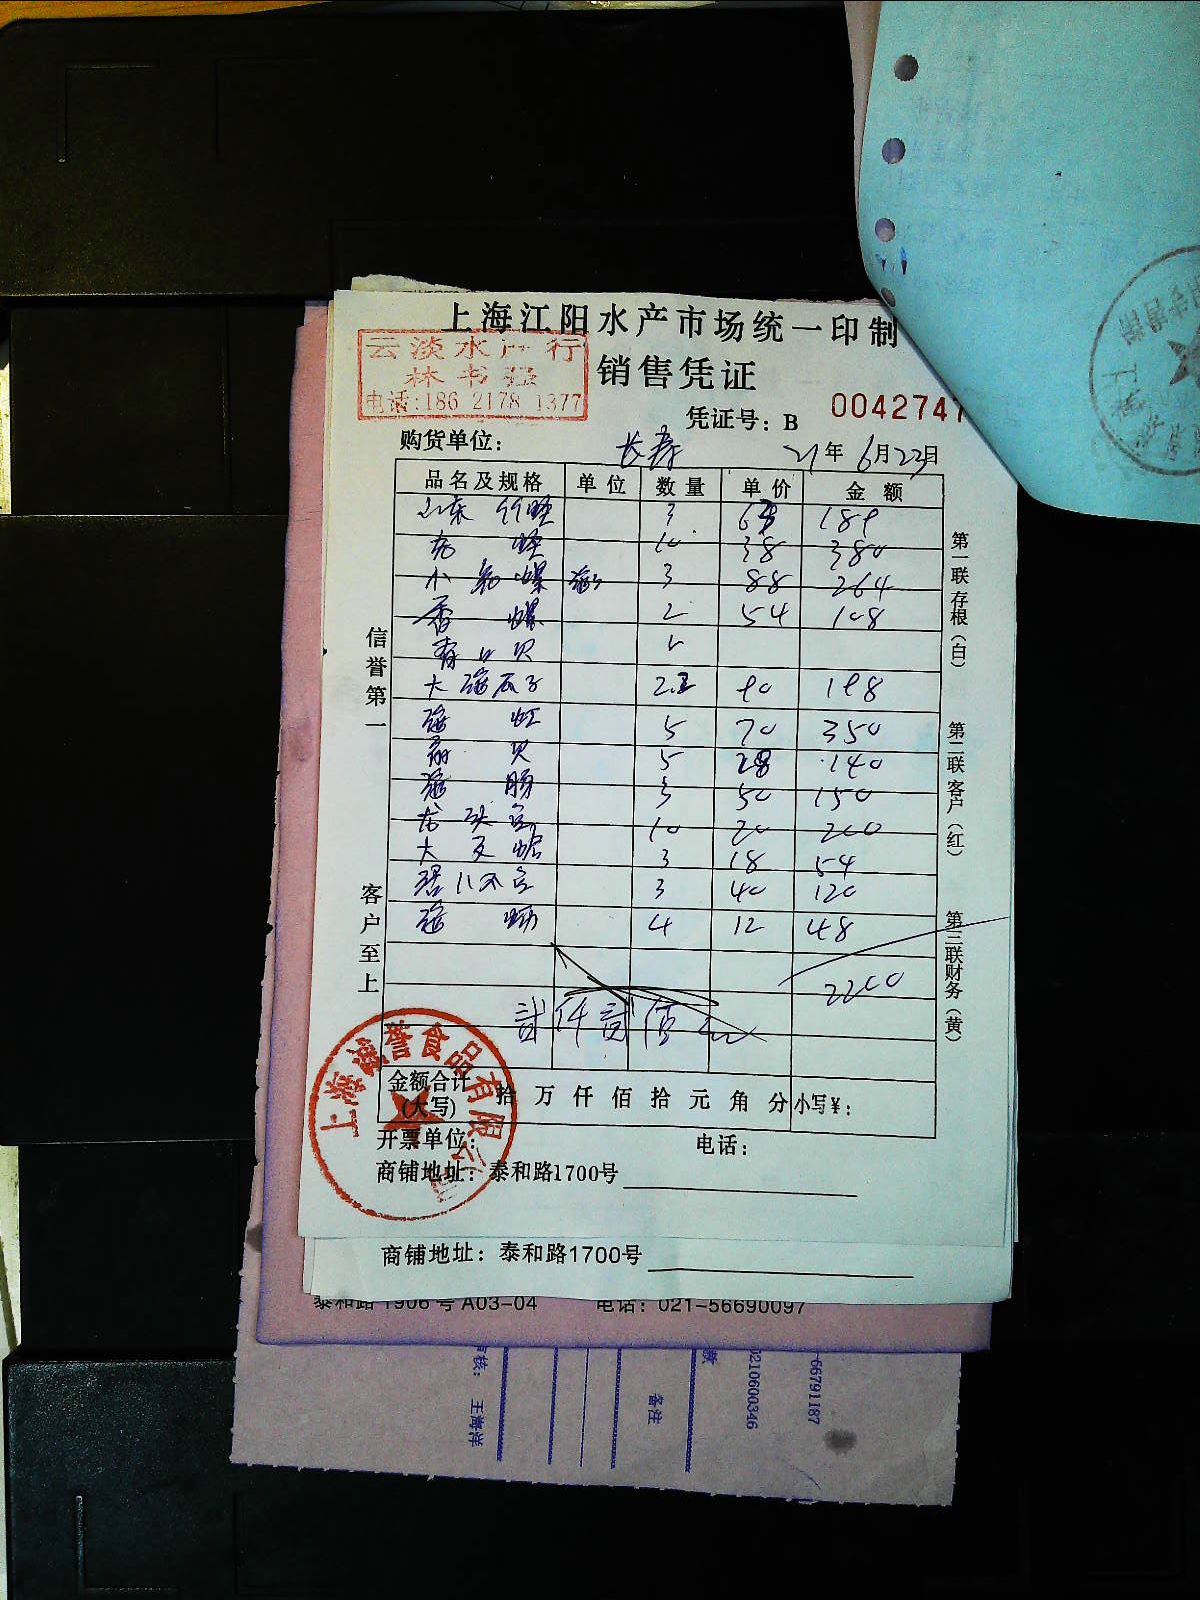 上海江阳水产市场统一印制
云淡水产行
林书强
电话:186 2178 1377
销售凭证
凭证号：B 0042747
购货单位： 长寿 21年 6月23日
品名及规格 单位 数量 单价 金额
山东 竹蛏 3 63 189
蛏 10 38 380
小 螺 3 88 264
香 螺 2 54 108
青口贝
大海瓜子 2.2 90 198
海虹 5 70 350
扇贝 5 28 140
海肠 3 50 150
龙头鱼 10 20 200
大 蛤 3 18 54
3 40 120
海 4 12 48
2200
贰仟贰佰元
金额合计
(大写) 拾 万 仟 佰 拾 元 角 分 小写¥：
开票单位： 电话：
商铺地址：泰和路1700号
信誉第一
客户至上
第一联存根（白）
第二联客户（红）
第三联财务（黄）
上海诚誉食品有限公司
商铺地址：泰和路1700号
泰和路1906号A03-04 电话：021-56690097
审核：王海洋
备注
0210600346
-66791187